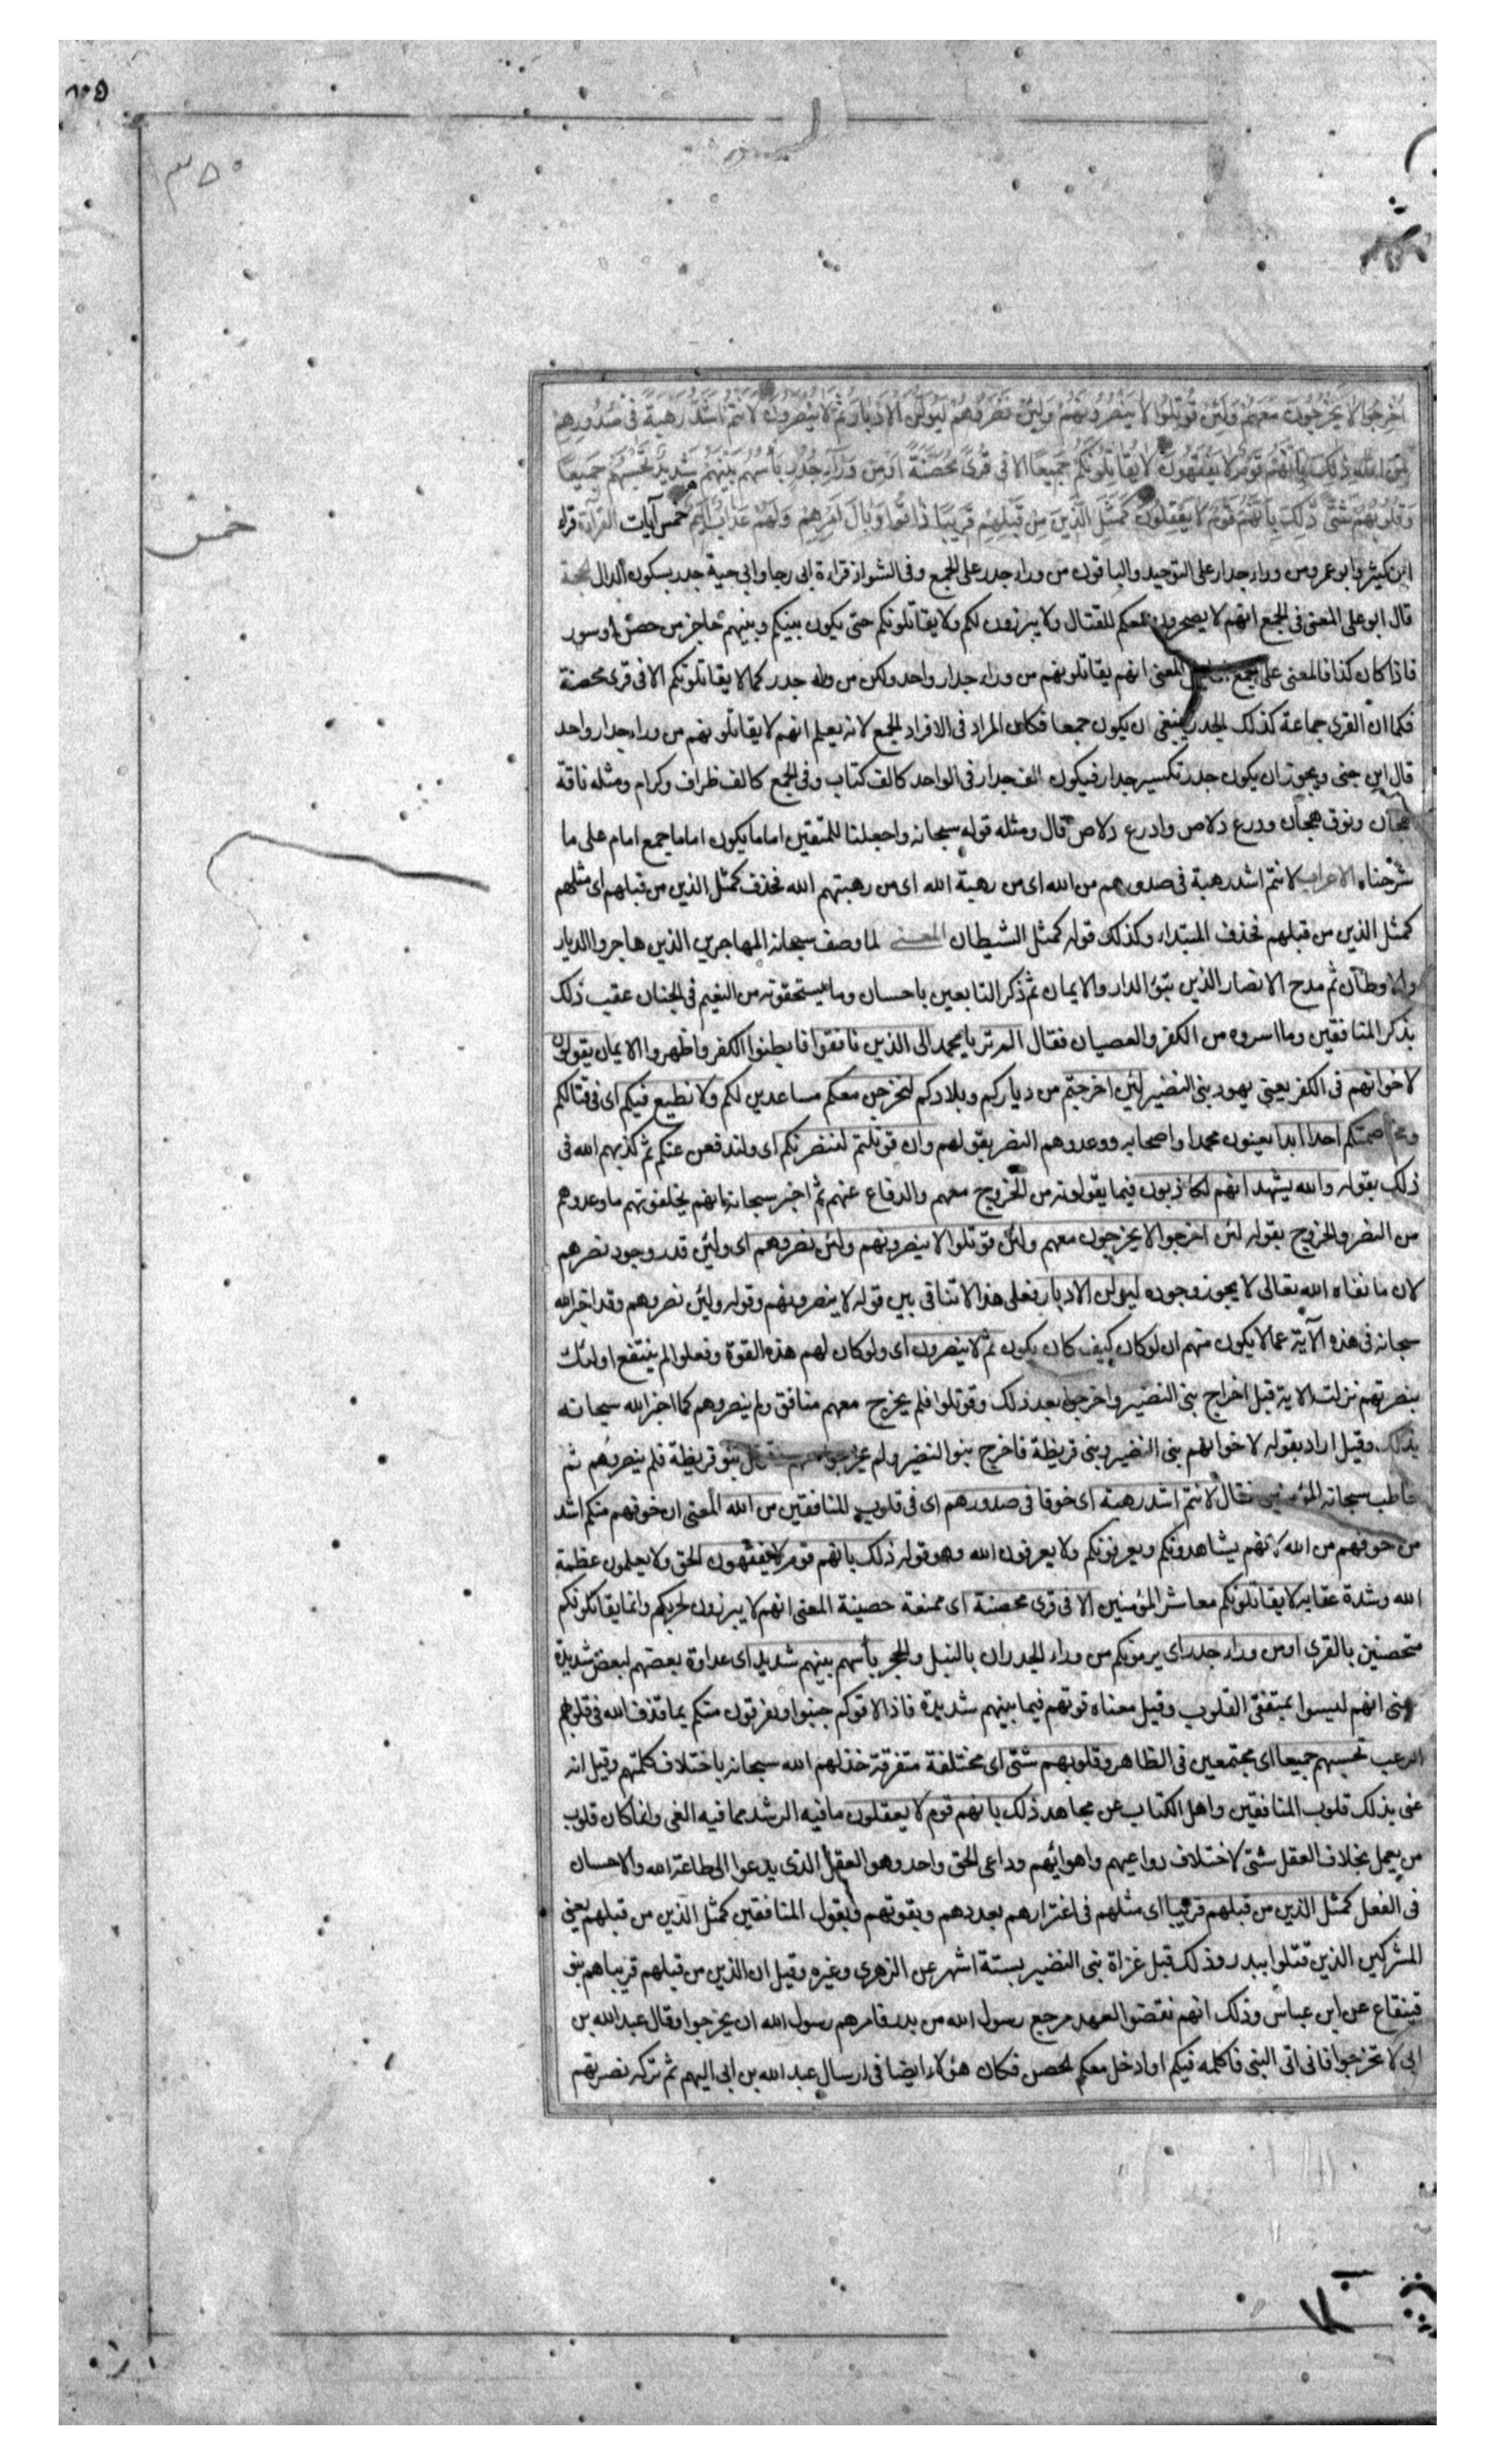 اُخْرِجُوا لَا يَخْرُجُونَ مَعَهُمْ وَلَئِنْ قُوتِلُوا لَا يَنْصُرُونَهُمْ وَلَئِنْ نَصَرُوهُمْ لَيُوَلُّنَّ الْأَدْبَارَ ثُمَّ لَا يُنْصَرُونَ لَأَنْتُمْ أَشَدُّ رَهْبَةً فِي صُدُورِهِمْ
مِنَ اللَّهِ ذَٰلِكَ بِأَنَّهُمْ قَوْمٌ لَا يَفْقَهُونَ لَا يُقَاتِلُونَكُمْ جَمِيعًا إِلَّا فِي قُرًى مُحَصَّنَةٍ أَوْ مِنْ وَرَاءِ جُدُرٍ بَأْسُهُمْ بَيْنَهُمْ شَدِيدٌ تَحْسَبُهُمْ جَمِيعًا
وَقُلُوبُهُمْ شَتَّى ذَٰلِكَ بِأَنَّهُمْ قَوْمٌ لَا يَعْقِلُونَ كَمَثَلِ الَّذِينَ مِنْ قَبْلِهِمْ قَرِيبًا ذَاقُوا وَبَالَ أَمْرِهِمْ وَلَهُمْ عَذَابٌ أَلِيمٌ خمس آيات القراءة قراء
خمس
ابن كثير وابو عمرو من وراء جدار على التوحيد والباقون من وراء جدر على الجمع وفى الشواذ قراءة ابى رجا وابى حية جدر بسكون الدال الحجة
قال ابو على المعنى فى الجمع انهم لا يصحرون معكم للقتال ولا يبرزون لكم ولا يقاتلونكم حتى يكون بينكم وبينهم حاجز من حصن او سور
فاذا كان كذا فالمعنى على الجمع المعنى انهم يقاتلونهم من وراء جدار واحد ولكن من وراء جدر كما لا يقاتلونكم الا فى قرى محصنة
فكما ان القرى جماعة كذلك الجدر ينبغى ان يكون جمعا فكان المراد فى الافراد الجمع لانه يعلم انهم لا يقاتلونهم من وراء جدار واحد
قال ابن جنى ويجوز ان يكون جدر تكسير جدار فيكون الف جدار فى الواحد كالف كتاب وفى الجمع كالف ظراف وكرام ومثله ناقة
هجان ونوق هجان ودرع دلاص وادرع دلاص قال ومثله قوله سبحانه واجعلنا للمتقين اماما يكون اماما جمع امام على ما
شرحناه الاعراب لانتم اشد رهبة فى صدورهم من الله اى من رهبة الله اى من رهبتهم الله فحذف كمثل الذين من قبلهم اى مثلهم
كمثل الذين من قبلهم فحذف المبتداء وكذلك قوله كمثل الشيطان المعنى لما وصف سبحانه المهاجرين الذين هاجروا الديار
والاوطان ثم مدح الانصار الذين تبوؤ الدار والايمان ثم ذكر التابعين باحسان وما يستحقونه من النعيم فى الجنان عقب ذلك
بذكر المنافقين وما اسروه من الكفر والعصيان فقال الم تر يا محمد الى الذين نافقوا فابطنوا الكفر واظهروا الايمان يقولون
لاخوانهم فى الكفر يعنى يهود بنى النضير لئن اخرجتم من دياركم وبلادكم لنخرجن معكم مساعدين لكم ولا نطيع فيكم اى فى قتالكم
ومخاصمتكم احدا ابدا يعنون محمدا واصحابه ووعدوهم النصر بقولهم وان قوتلتم لننصرنكم اى ولندفعن عنكم ثم كذبهم الله فى
ذلك بقوله والله يشهد انهم لكاذبون فيما يقولونه من الخروج معهم والدفاع عنهم ثم اخبر سبحانه انهم يخلفونهم ما وعدوهم
من النصر والخروج بقوله لئن اخرجوا لا يخرجون معهم ولئن قوتلوا لا ينصرونهم ولئن نصروهم اى ولئن قدر وجود نصرهم
لان ما نفاه الله تعالى لا يجوز وجوده ليولن الادبار فعلى هذا لا تنافى بين قوله لا ينصرونهم وقوله ولئن نصروهم وقد اخبر الله
سبحانه فى هذه الآية عما لا يكون منهم ان لو كان كيف كان يكون ثم لا ينصرون اى ولو كان لهم هذه القوة وفعلوا لم ينتفع اولئك
بنصرتهم نزلت الاية قبل اخراج بنى النضير واخرجوا بعد ذلك وقوتلوا فلم يخرج معهم منافق ولم ينصروهم كما اخبر الله سبحانه
بذلك وقيل اراد بقوله لاخوانهم بنى النضير وبنى قريظة فاخرج بنو النضير ولم يخرجوا معهم وقوتل بنو قريظة فلم ينصروهم ثم
خاطب سبحانه المؤمنين فقال لانتم اشد رهبة اى خوفا فى صدورهم اى فى قلوب المنافقين من الله المعنى ان خوفهم منكم اشد
من خوفهم من الله لانهم يشاهدونكم ويعرفونكم ولا يعرفون الله وهو قوله ذلك بانهم قوم لا يفقهون الحق ولا يعلمون عظمة
الله وشدة عقابه لا يقاتلونكم معاشر المؤمنين الا فى قرى محصنة اى ممنعة حصينة المعنى انهم لا يبرزون لحربكم وانما يقاتلونكم
متحصنين بالقرى او من وراء جدر اى يرمونكم من وراء الجدران بالنبل والحجر بأسهم بينهم شديد اى عداوة بعضهم لبعض شديدة
يعنى انهم ليسوا بمتفقى القلوب وقيل معناه قوتهم فيما بينهم شديدة فاذا لاقوكم جبنوا ويفرقون منكم بما قذف الله فى قلوبهم
الرعب تحسبهم جميعا اى مجتمعين فى الظاهر وقلوبهم شتى اى مختلفة متفرقة خذلهم الله سبحانه باختلاف كلمتهم وقيل انه
عنى بذلك قلوب المنافقين واهل الكتاب عن مجاهد ذلك بانهم قوم لا يعقلون ما فيه الرشد مما فيه الغى وانما كان قلوب
من يعمل بخلاف العقل شتى لاختلاف دواعيهم واهوائهم وداعى الحق واحد وهو العقل الذى يدعوا الى طاعة الله والاحسان
فى الفعل كمثل الذين من قبلهم قريبا اى مثلهم فى اغترارهم بعددهم وبقوتهم وبقول المنافقين كمثل الذين من قبلهم يعنى
المشركين الذين قتلوا ببدر وذلك قبل غزاة بنى النضير بستة اشهر عن الزهرى وغيره وقيل ان الذين من قبلهم قريبا هم بنو
قينقاع عن ابن عباس وذلك انهم نقضوا العهد مرجع رسول الله من بدر فامرهم رسول الله ان يخرجوا وقال عبد الله بن
ابى لا تخرجوا فانى اتى النبى فاكلمه فيكم او ادخل معكم الحصن فكان هؤلاء ايضا فى ارسال عبد الله بن ابى اليهم ثم تركه نصرتهم